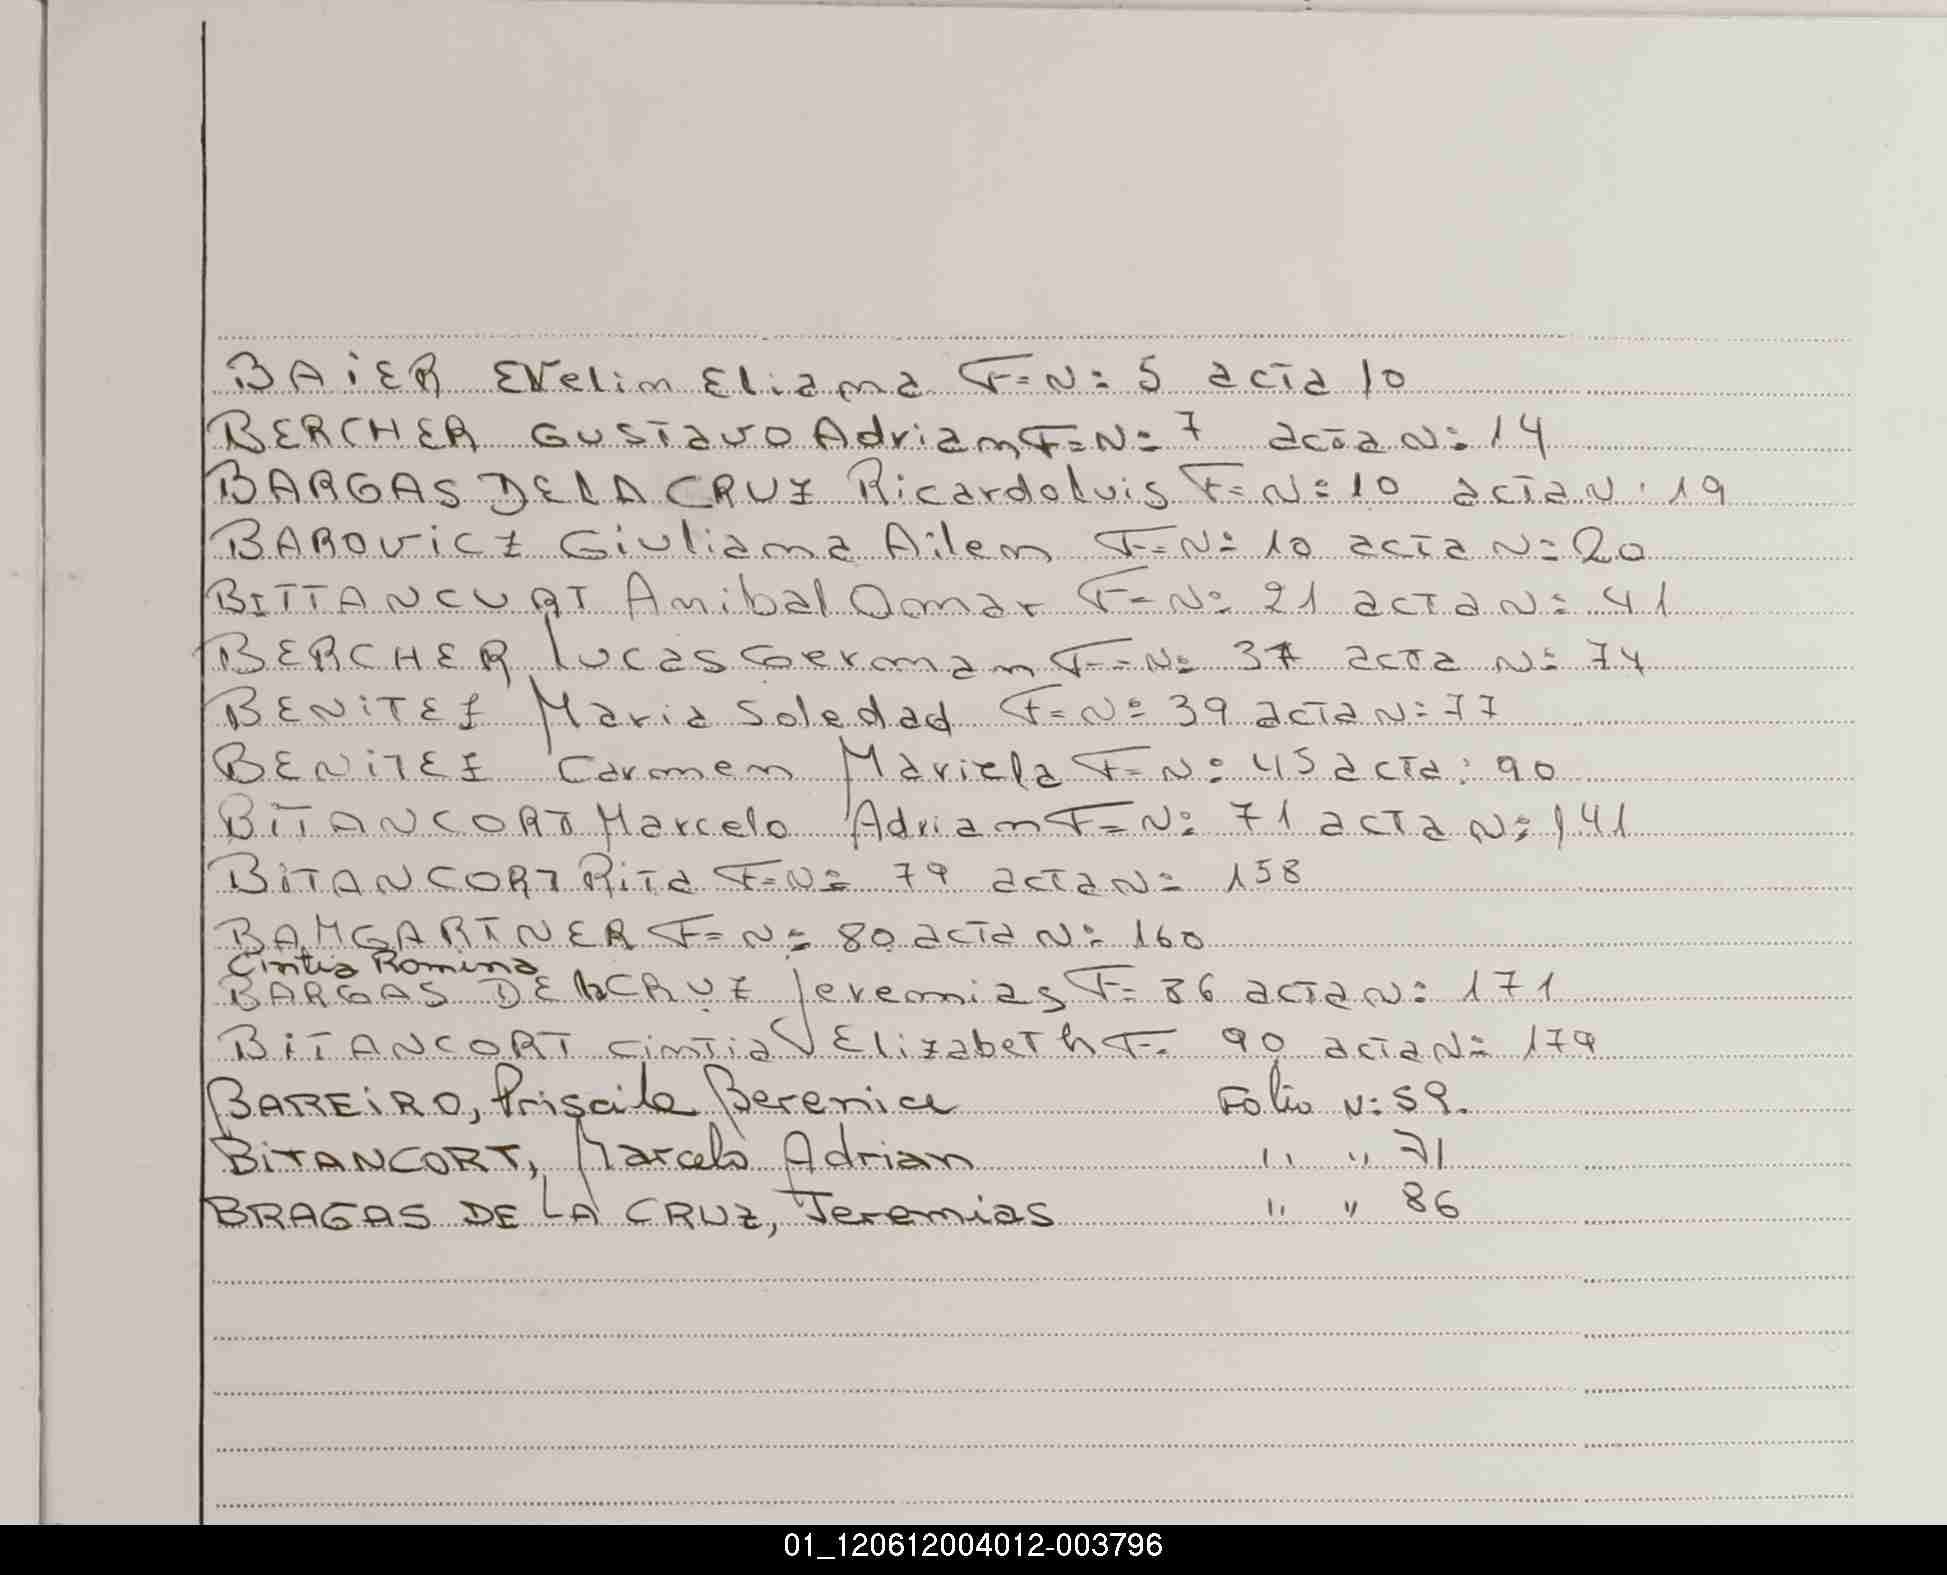 BAiER EVelin Eliana F=N: 5 acta 10
BERCHER GUSTavo Adrian F=N= 7 acta N: 14
BARGAS DE LA CRUZ Ricardo luis F= N: 10 acta N: 19
BAROVicz Giuliana Ailen F=N: 10 acta N=20
BITTANCURT Anibal Omar F=N: 21 acta N: 41
BERCHER lucas German F=N: 37 acta N: 74
BENiTEZ Maria Soledad F=N: 39 acta N: 77
BENiTEZ Carmen Mariela F=N: 45 acta: 90
BiTANCORT Marcelo Adrian F=N: 71 acta N: 141
BiTANCORT Rita F=N= 79 acta N= 158
BAMGARTNER F=N: 80 acta N: 160
Cintia Romina
BARGAS DE la CRUZ Jeremias F= 86 acta N: 171
BiTANCORT cintia Elizabeth F= 90 acta N= 179
BAREiRO, Priscila Berenice Folio N: 59.
BiTANCORT, Marcelo Adrian " " 71
BRAGAS DE LA CRUZ, Jeremias " " 86
01_120612004012-003796